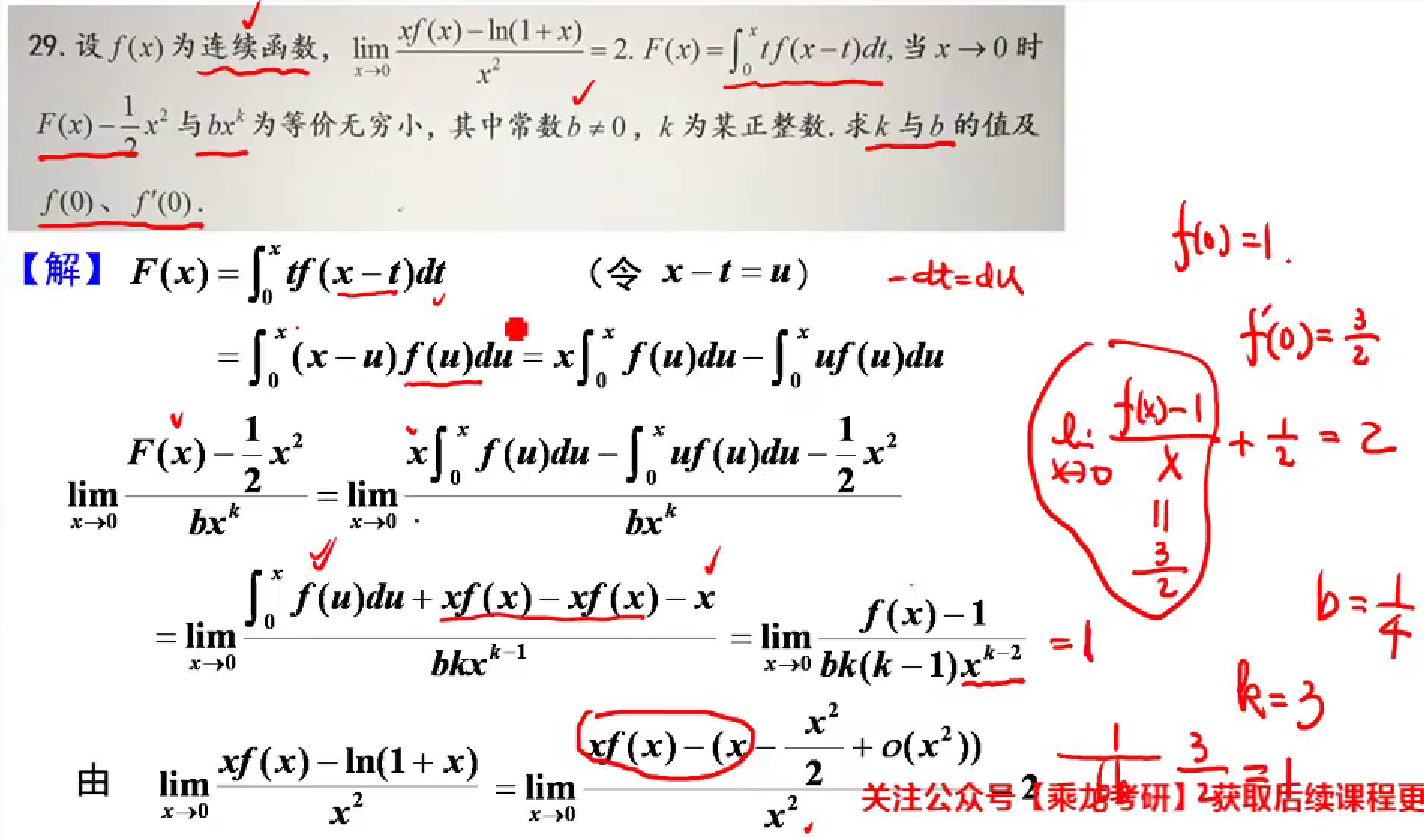 29. 设 f(x) 为连续函数, lim_{x→0} \frac{xf(x)-ln(1+x)}{x^2} = 2. F(x) = ∫_0^x tf(x-t)dt, 当 x→0 时
F(x) - \frac{1}{2}x^2 与 bx^k 为等价无穷小, 其中常数 b≠0, k 为某正整数. 求 k 与 b 的值及
f(0)、f′(0).
f(0)=1.
【解】 F(x) = ∫_0^x tf(x-t)dt (令 x-t=u) -dt=du
= ∫_0^x (x-u)f(u)du = x∫_0^x f(u)du - ∫_0^x uf(u)du
f′(0)=\frac{3}{2}
lim_{x→0} \frac{F(x)-\frac{1}{2}x^2}{bx^k} = lim_{x→0} \frac{x∫_0^x f(u)du - ∫_0^x uf(u)du - \frac{1}{2}x^2}{bx^k}
lim_{x→0} \frac{f(x)-1}{x} + \frac{1}{2} = 2
= \frac{3}{2}
= lim_{x→0} \frac{∫_0^x f(u)du + xf(x) - xf(x) - x}{bkx^{k-1}} = lim_{x→0} \frac{f(x)-1}{bk(k-1)x^{k-2}} = 1
b=\frac{1}{4}
k=3
由 lim_{x→0} \frac{xf(x)-ln(1+x)}{x^2} = lim_{x→0} \frac{xf(x)-(x-\frac{x^2}{2}+o(x^2))}{x^2} = 2
\frac{3}{2} = 1
关注公众号【乘龙考研】获取后续课程更